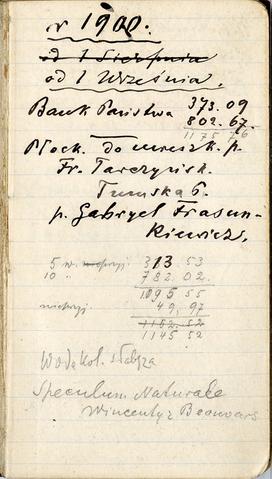 w 1900.
od 1 Sierpnia
od 1 Września.
Bank Państwa 373.09
802.67.
1175 76
Płock. Do mieszk. p.
Fr. Tarczyńsk.
Tumska 6.
p. Gabryel Frasun-
kiewicz.
5 w. 313 53
10 " 782.02.
1095 55
49,97
1152.52
1145 52
Woda kol.
Speculum Naturale
Wincenty z Beauvais